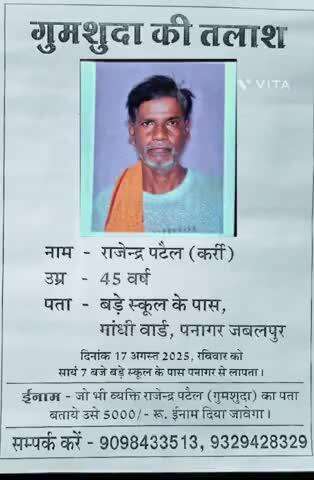 गुमशुदा की तलाश
VITA
नाम - राजेन्द्र पटैल (कर्री)
उम्र - 45 वर्ष
पता - बड़े स्कूल के पास,
गांधी वार्ड, पनागर जबलपुर
दिनांक 17 अगस्त 2025, रविवार को
सायं 7 बजे बड़े स्कूल के पास पनागर से लापता।
ईनाम - जो भी व्यक्ति राजेन्द्र पटैल (गुमशुदा) का पता
बताये उसे 5000/- रू. ईनाम दिया जावेगा।
सम्पर्क करें - 9098433513, 9329428329